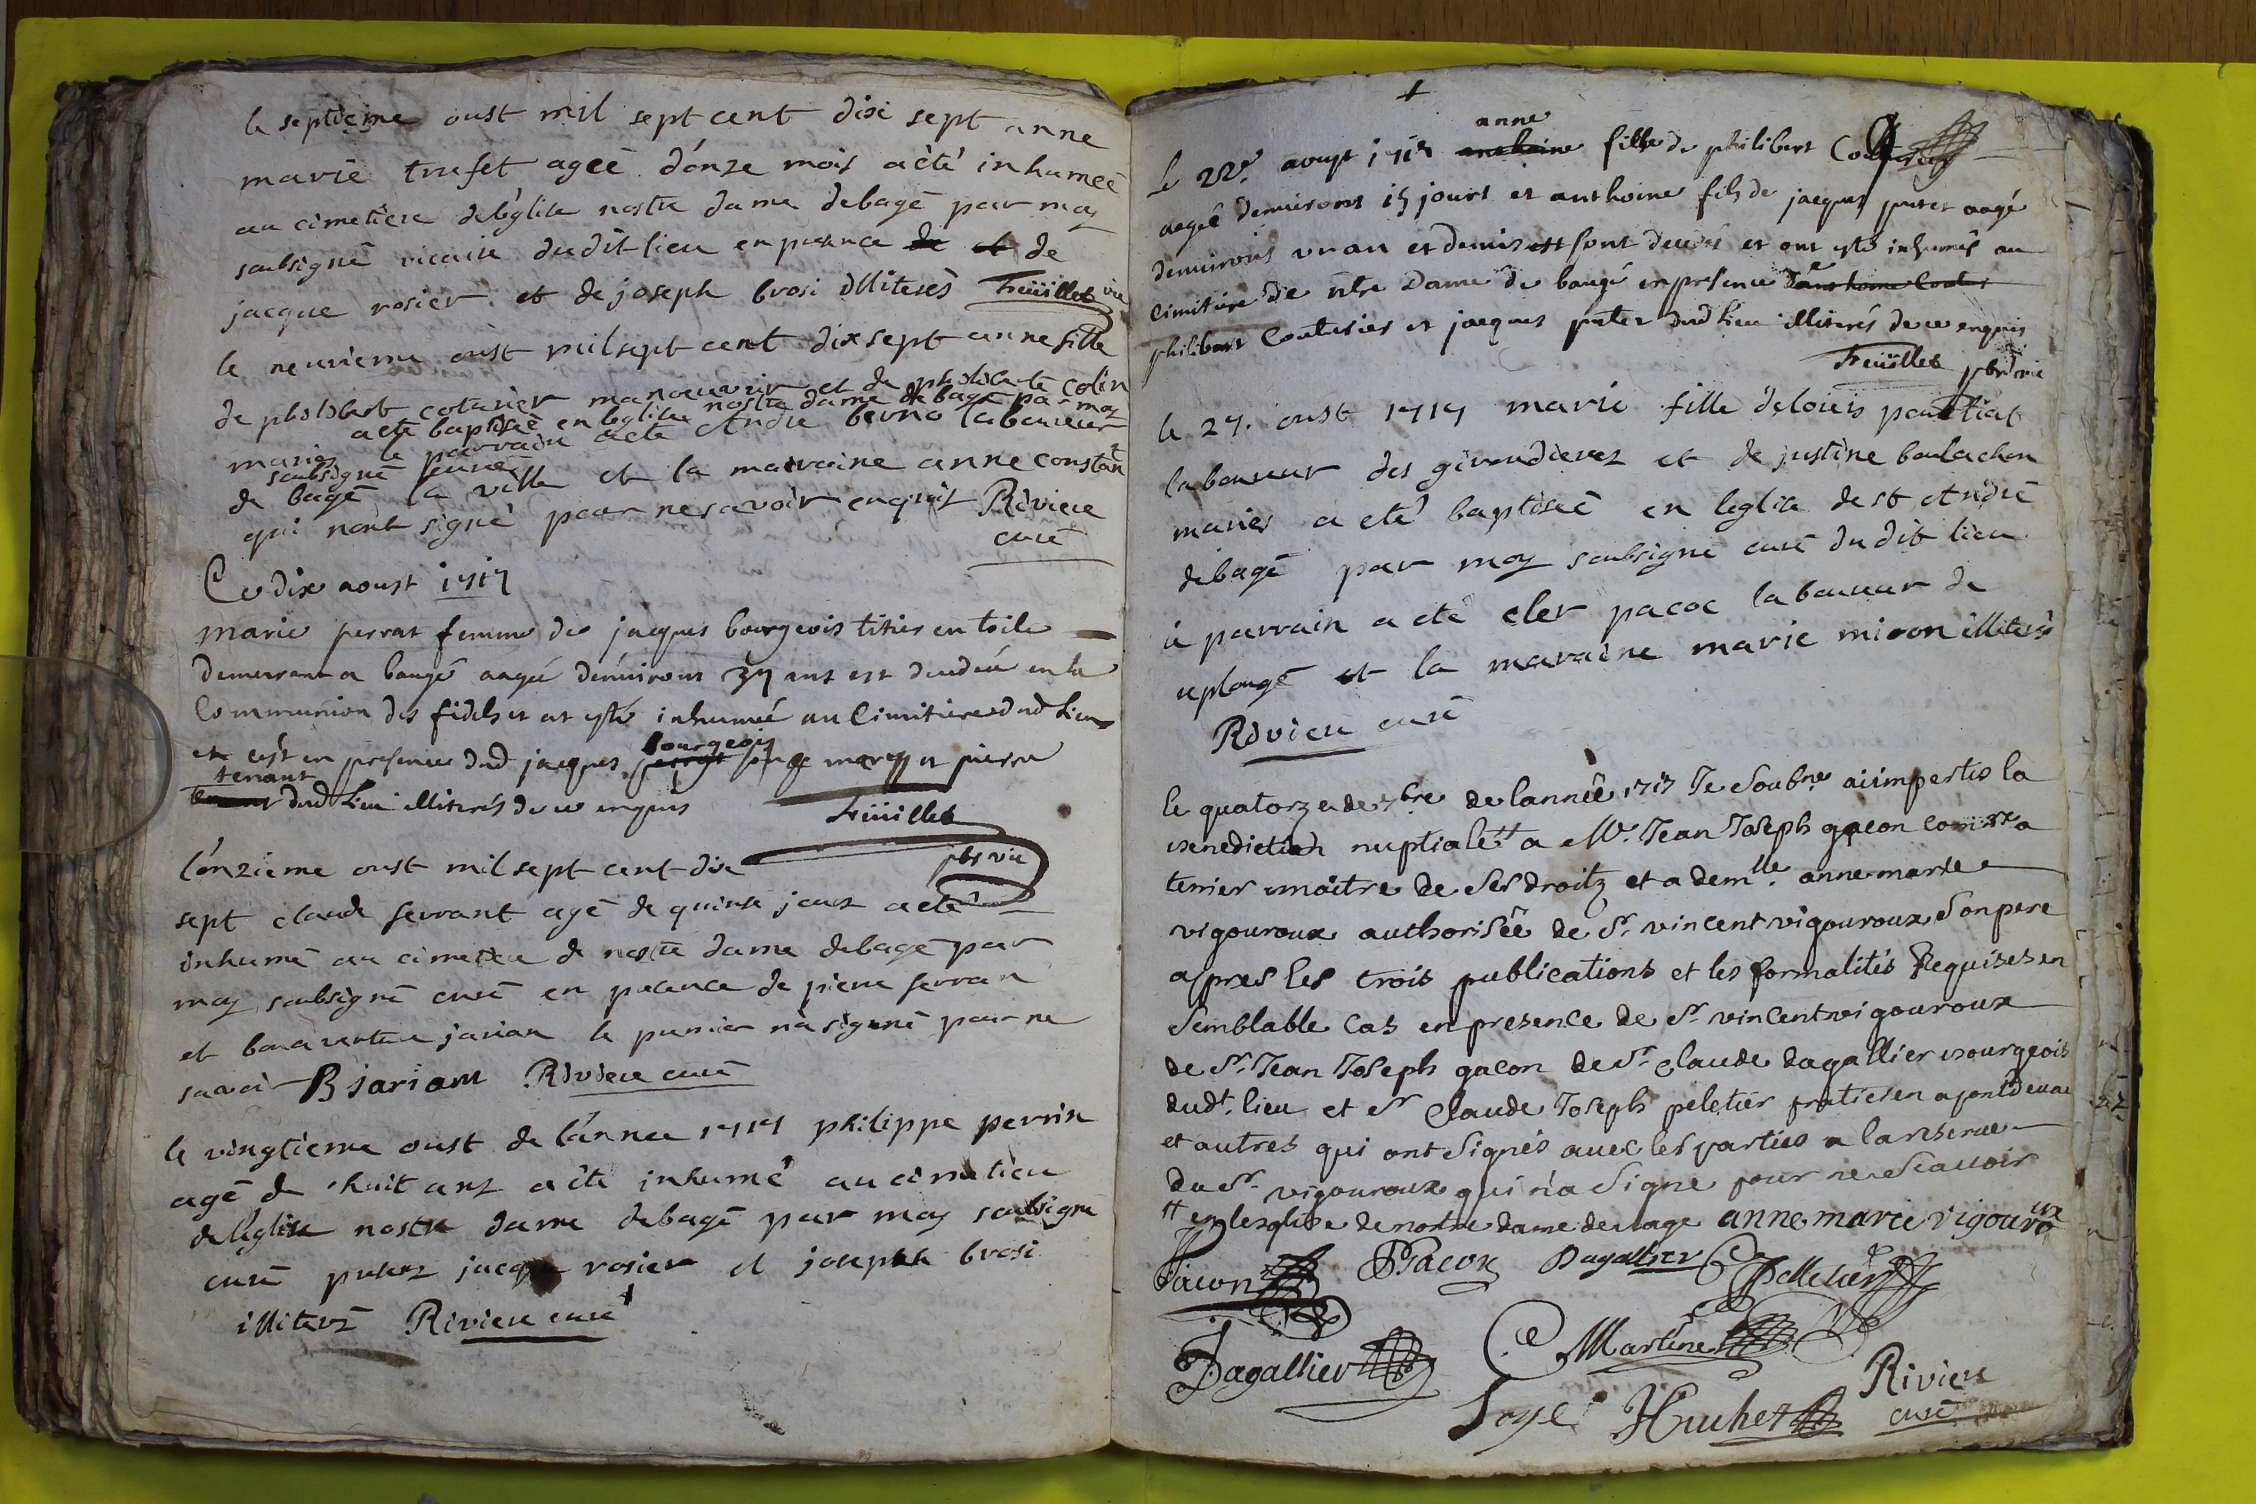 le septieme oust mil sept cent dixe sept anne
marie trufet ageé d'onze mois a èté inhumeé
au cimetiere de l'eglise nostre dame debagé par moy
soubsigné vicaire dudit lieu en presence de
jacque rosier et de joseph brosi illiterès Feüillet vic
le neuvieme oust mil sept cent dix sept anne fille
de philibert coturier manoeuvrier et de philiberte colin
a eté baptiseé en leglise nostre dame de bagé par moy
mariez le parrain a eté Andre berno laboureur
soubsigné curé
de bagé la ville et la maraine anne constant
qui n'ont signé pour ne savoir enquis Riviere
curé
Ce dix aoust 1717
marie perrat femme de jacques bourgeois titier en toile
demeurant a baugé aagée d'enuirons 37 ans est decedée en la
Communion des fidels et at esté inhumée au Cimitiere dud Lieu
et c'est en presence dud jacques bourgeois son mary et pierre
tenant
dud Lieu illiterés de ce enquis Feüillet
l'onzieme oust mil sept cent dix pbr vic
sept claude ferrant agé de quinse jours a eté
inhumé au cimetiere de nostre dame debagé par
moy soubsigné curé en presence de pierre ferran
et bonaventure jarian le premier n'a signé pour ne
savoir B jariant Riviere curé
le vingtieme oust de l'annee 1717 philippe perrin
agé de huit ans a èté inhumé au cimetiere
de l'eglise nostre dame debagé par moy soubsigné
curé presens jacque rosier et joseph brosi
illiterez Riviere curé
anne
Le 22e. aougt 1717 fille de philibert Couturier
aagée denuirons 15 jours et anthoine fils de jacques puter aagé
denuirons un an et demis sont decedés et ont esté inhumés au
Cimitiere de ntre Dame de baugé en presence
philibert Couturier et jacques puter dud Lieu illiterés de ce enquis
Feüillet pbr vic
le 27. oust 1717 marie fille de loüis
laboureur des girondieres et de justine boulachon
mariez a eté baptiseé en leglise de st André
debagé par moy soubsigné curé du dit lieu
le parrain a eté cler pacoc laboureur de
replongé et la maraine marie miron illiterès
Riviere curé
le quatorze de 7bre de l'année 1717 Je Soubné ai imparti la
benediction nuptiale ++ a Mr. Jean Joseph gacon comxre a
terrier maître de Ses droitz et a demlle. anne marie
vigouroux authorisée de Sr. vincent vigouroux Son pere
apres les trois publications et les formalités Requises en
Semblable Cas en presence de Sr. vincent vigouroux
de Sr. Jean Joseph gacon de Sr. Claude dagallier bourgeois
dudt. lieu et Sr Claude Joseph peletier praticien a pontdevaux
et autres qui ont Signés avec les parties a la reserue
du Sr. vigouroux qui n'a Signe pour ne Scavoir
++ en l'esglise de nostre dame de bage anne marie vigouroux
Gacon Gacon Dagallier Pelletier
Dagallier Martine
Joye Huchet Riviere
curé